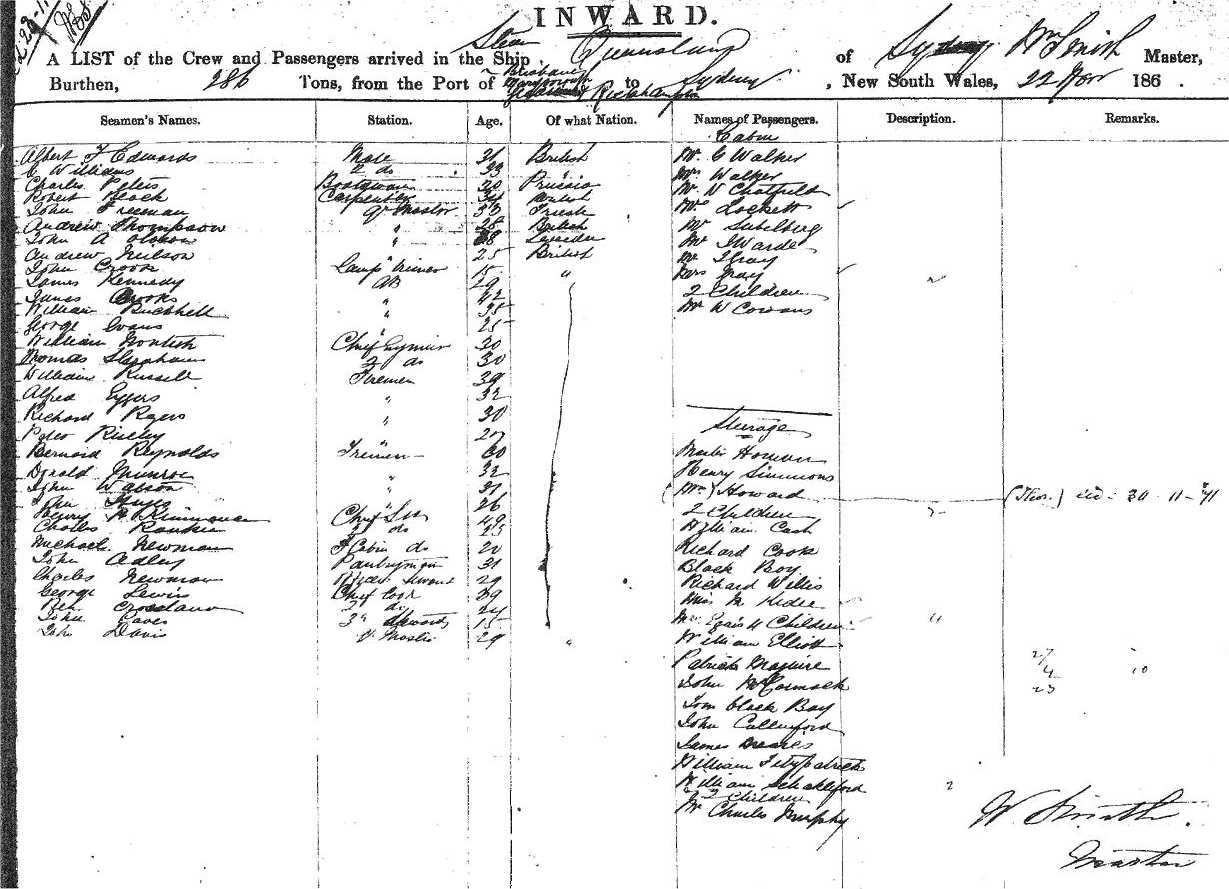 INWARD.
A LIST of the Crew and Passengers arrived in the Ship Queensland of Sydney Wm Smith Master,
Burthen, 286 Tons, from the Port of Brisbane Maryborough Rockhampton to Sydney, New South Wales, 22 Nov 186 .
Seamen's Names. Station. Age. Of what Nation. Names of Passengers. Description. Remarks.
Cabin
Albert F Edwards Mate 31 British Mr G Walker
C Williams 2 do 33 " Mrs Walker
Charles Peters Boatswain 30 Prussia Mr W Chatfield
Robert Carpenter 34 British Mr Lockett
John Freeman Qr Master 33 Trieste
Andrew Thompson " British Mr
John A " Mr J Warde
Andrew Neilson 25 British Mr J Gray
John Crook Lamp Trimer 15 " Mrs Gray
James Kennedy AB 29 2 Children
James Crooks " 42 Mr W Cowans
William Buckhell " 35
George Evans " 25
William Chief Engineer 30
Thomas 2 do 30
William Russell Firemen 39
Alfred Eggers " 32
Richard Rogers " 30
Steerage
Peter Riseley " 27
Bernard Reynolds Trimers 60 Martin Homan
Donald Munroe " 32 Henry Simmons
John Watson " 31 (Mrs) Howard (Thos.) 30-11-71
John Hayes 26 2 Children 2
Henry Chief Std 49 William Cash
Charles Rankin 2 do 23
Michael Newman F Cabin do 20 Richard Cook
John Adley Pantryman 31 Black Boy
Charles Newman Servant 29 Richard Willis
George Lewis Chief Cook 39 Miss M
Ben Crossland 2 do 24
John Caves 3 Steward 15 4 Children "
John Davis Qr Master 29 " William Elliott
Patrick Maguire 27 4 10
John McCormack 23
Tom black Boy
John Cullenford
James Meares
William Fitzpatrick
William Schakleford
2 Children 2
Mr Charles Murphy
W Smith.
Master